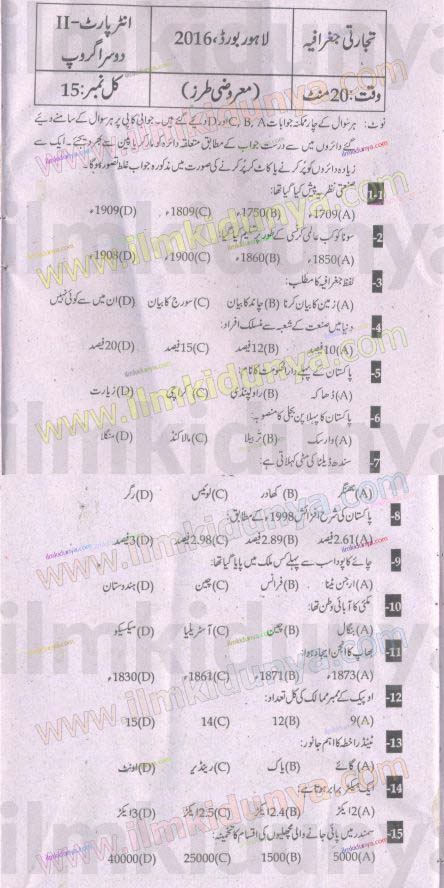 تجارتی جغرافیہ
لاہور بورڈ، 2016
انٹر پارٹ-II
دوسرا گروپ
وقت: 20 منٹ
(معروضی طرز)
کل نمبر: 15
نوٹ: ہر سوال کے چار ممکنہ جوابات A، B، C اور D دیئے گئے ہیں۔ جوابی کاپی پر ہر سوال کے سامنے دیئے
گئے دائروں میں سے درست جواب کے مطابق متعلقہ دائرہ کو مارکر یا پین سے بھر دیجئے۔ ایک سے
زیادہ دائروں کو پُر کرنے یا کاٹ کر پُر کرنے کی صورت میں مذکورہ جواب غلط تصور ہوگا۔
1-1 صنعتی نظریہ پیش کیا گیا تھا:
(A) 1709ء (B) 1750ء (C) 1809ء (D) 1909ء
2- سونا کو کب عالمی کرنسی کے طور پر تسلیم کیا گیا:
(A) 1850ء (B) 1860ء (C) 1900ء (D) 1908ء
3- لفظ جغرافیہ کا مطلب:
(A) زمین کا بیان کرنا (B) چاند کا بیان (C) سورج کا بیان (D) ان میں سے کوئی نہیں
4- دنیا میں صنعت کے شعبہ سے منسلک افراد:
(A) 10 فیصد (B) 12 فیصد (C) 15 فیصد (D) 20 فیصد
5- پاکستان کے پہلے دارالحکومت کا نام:
(A) ڈھاکہ (B) راولپنڈی (C) کراچی (D) زیارت
6- پاکستان کا پہلا پن بجلی کا منصوبہ:
(A) وارسک (B) تربیلا (C) مالاکنڈ (D) منگلا
7- سندھ ڈیلٹا کی مٹی کہلاتی ہے:
(A) بھنگر (B) کھادر (C) لوئیس (D) رگر
8- پاکستان کی شرح افزائش 1998ء کے مطابق:
(A) 2.61 فیصد (B) 2.89 فیصد (C) 2.98 فیصد (D) 3 فیصد
9- چائے کا پودا سب سے پہلے کس ملک میں پایا گیا تھا:
(A) ارجن ٹینا (B) فرانس (C) چین (D) ہندوستان
10- مکئی کا آبائی وطن تھا:
(A) بنگال (B) چین (C) آسٹریلیا (D) میکسیکو
11- بھاپ کا انجن ایجاد ہوا:
(A) 1873ء (B) 1871ء (C) 1861ء (D) 1830ء
12- اوپیک کے ممبر ممالک کی کل تعداد:
(A) 9 (B) 12 (C) 14 (D) 15
13- ٹینڈرا خطہ کا اہم جانور:
(A) گائے (B) یاک (C) رینڈیر (D) اونٹ
14- ایک ہیکٹر برابر ہوتا ہے:
(A) 2 ایکڑ (B) 2.4 ایکڑ (C) 2.5 ایکڑ (D) 3 ایکڑ
15- سمندر میں پائی جانے والی مچھلیوں کی اقسام کا تخمینہ:
(A) 5000 (B) 1500 (C) 25000 (D) 40000
www.ilmkidunya.com